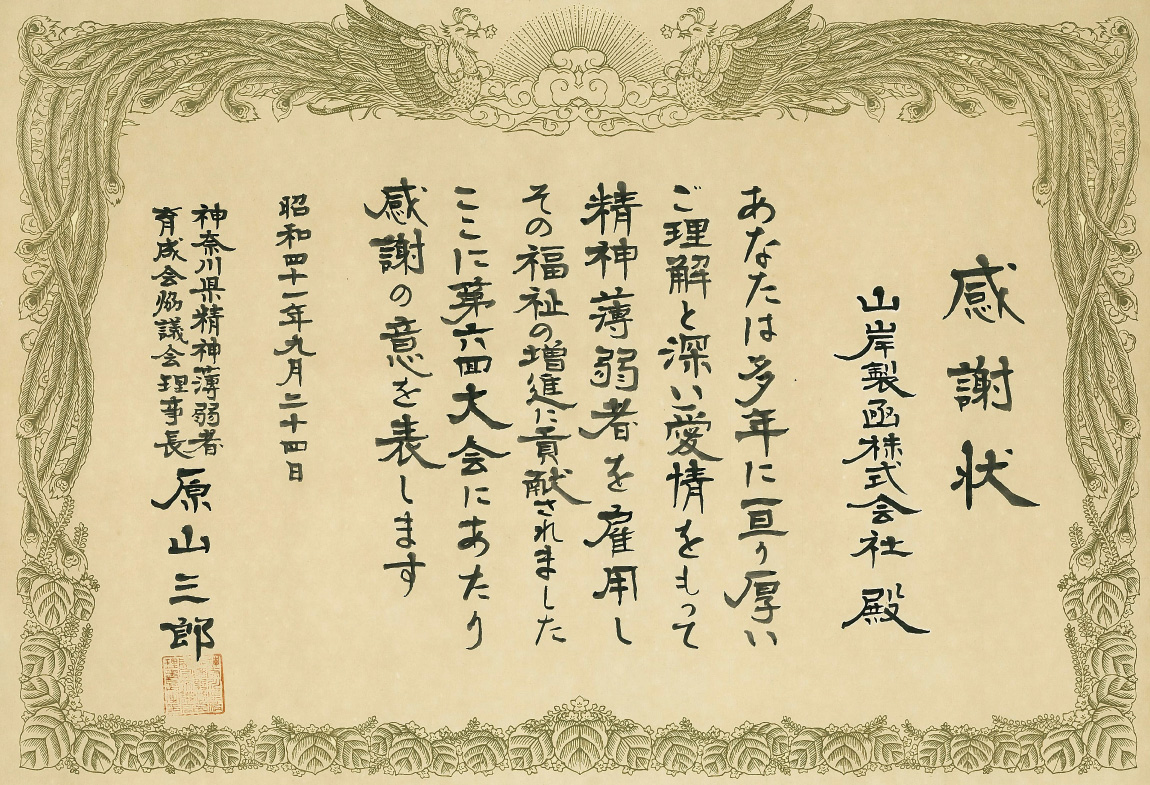 感謝状
山岸製函株式会社 殿
あなたは多年に亘り厚い
ご理解と深い愛情をもって
精神薄弱者を雇用し
その福祉の増進に貢献されました
ここに第六回大会にあたり
感謝の意を表します
昭和四十一年九月二十四日
神奈川県精神薄弱者
育成会協議会理事長
原山三郎